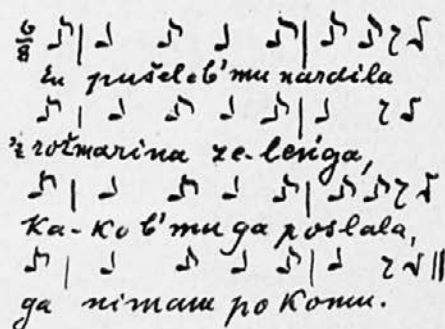 6/8
En pušelc b'mu nardila
'z rožmarina ze-len'ga,
Ka-ko b'mu ga poslala,
ga nimam po komu.